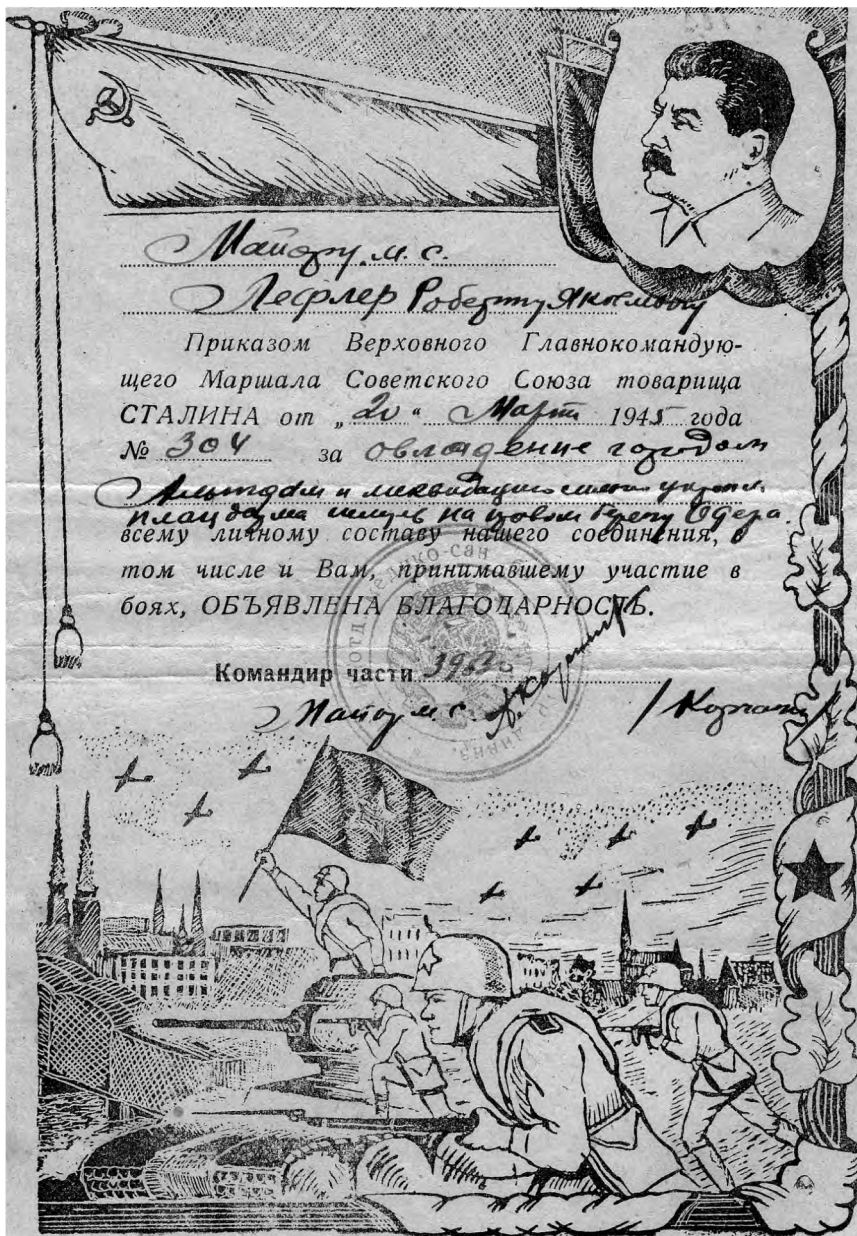 Майору м. с.
Лефлер Роберту Якимовичу
Приказом Верховного Главнокомандую-
щего Маршала Советского Союза товарища
СТАЛИНА от „20“ Март 1945 года
№ 304 за овладение городом
Альтдам и ликвидацию сильно укрепл.
плацдарма немцев на правом берегу Одера.
всему личному составу нашего соединения, в
том числе и Вам, принимавшему участие в
боях, ОБЪЯВЛЕНА БЛАГОДАРНОСТЬ.
Командир части
Майор м. с.